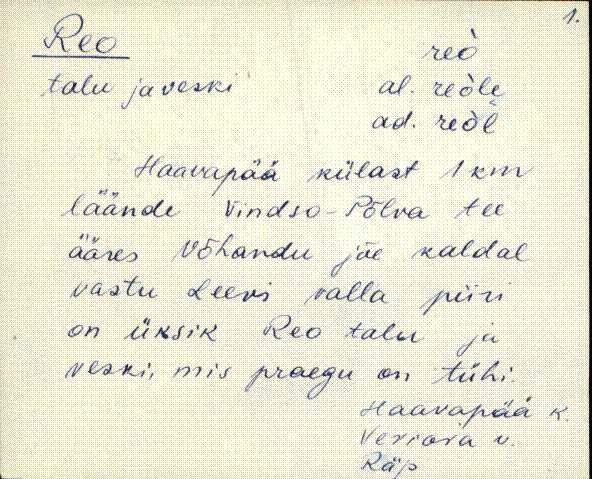 1.
Reo
reò
talu ja veski
al. reòle
ad. reòl
Haavapää külast 1 km
läände Vindso-Põlva tee
ääres Võhandu jõe kaldal
vastu Leevi valla piiri
on üksik Reo talu ja
veski, mis praegu on tühi.
Haavapää k.
Veriora v.
Räp